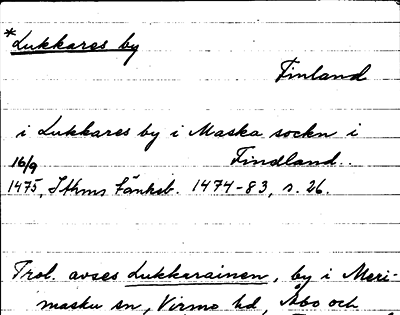 *Lukkares by
Finland
i Lukkares by i Maska sockn i
16/9 Findland.
1475, Sthms tänkeb. 1474-83, s. 26.
Trol. avses Lukkarainen, by i Meri-
masku sn, Virmo hd, Åbo och